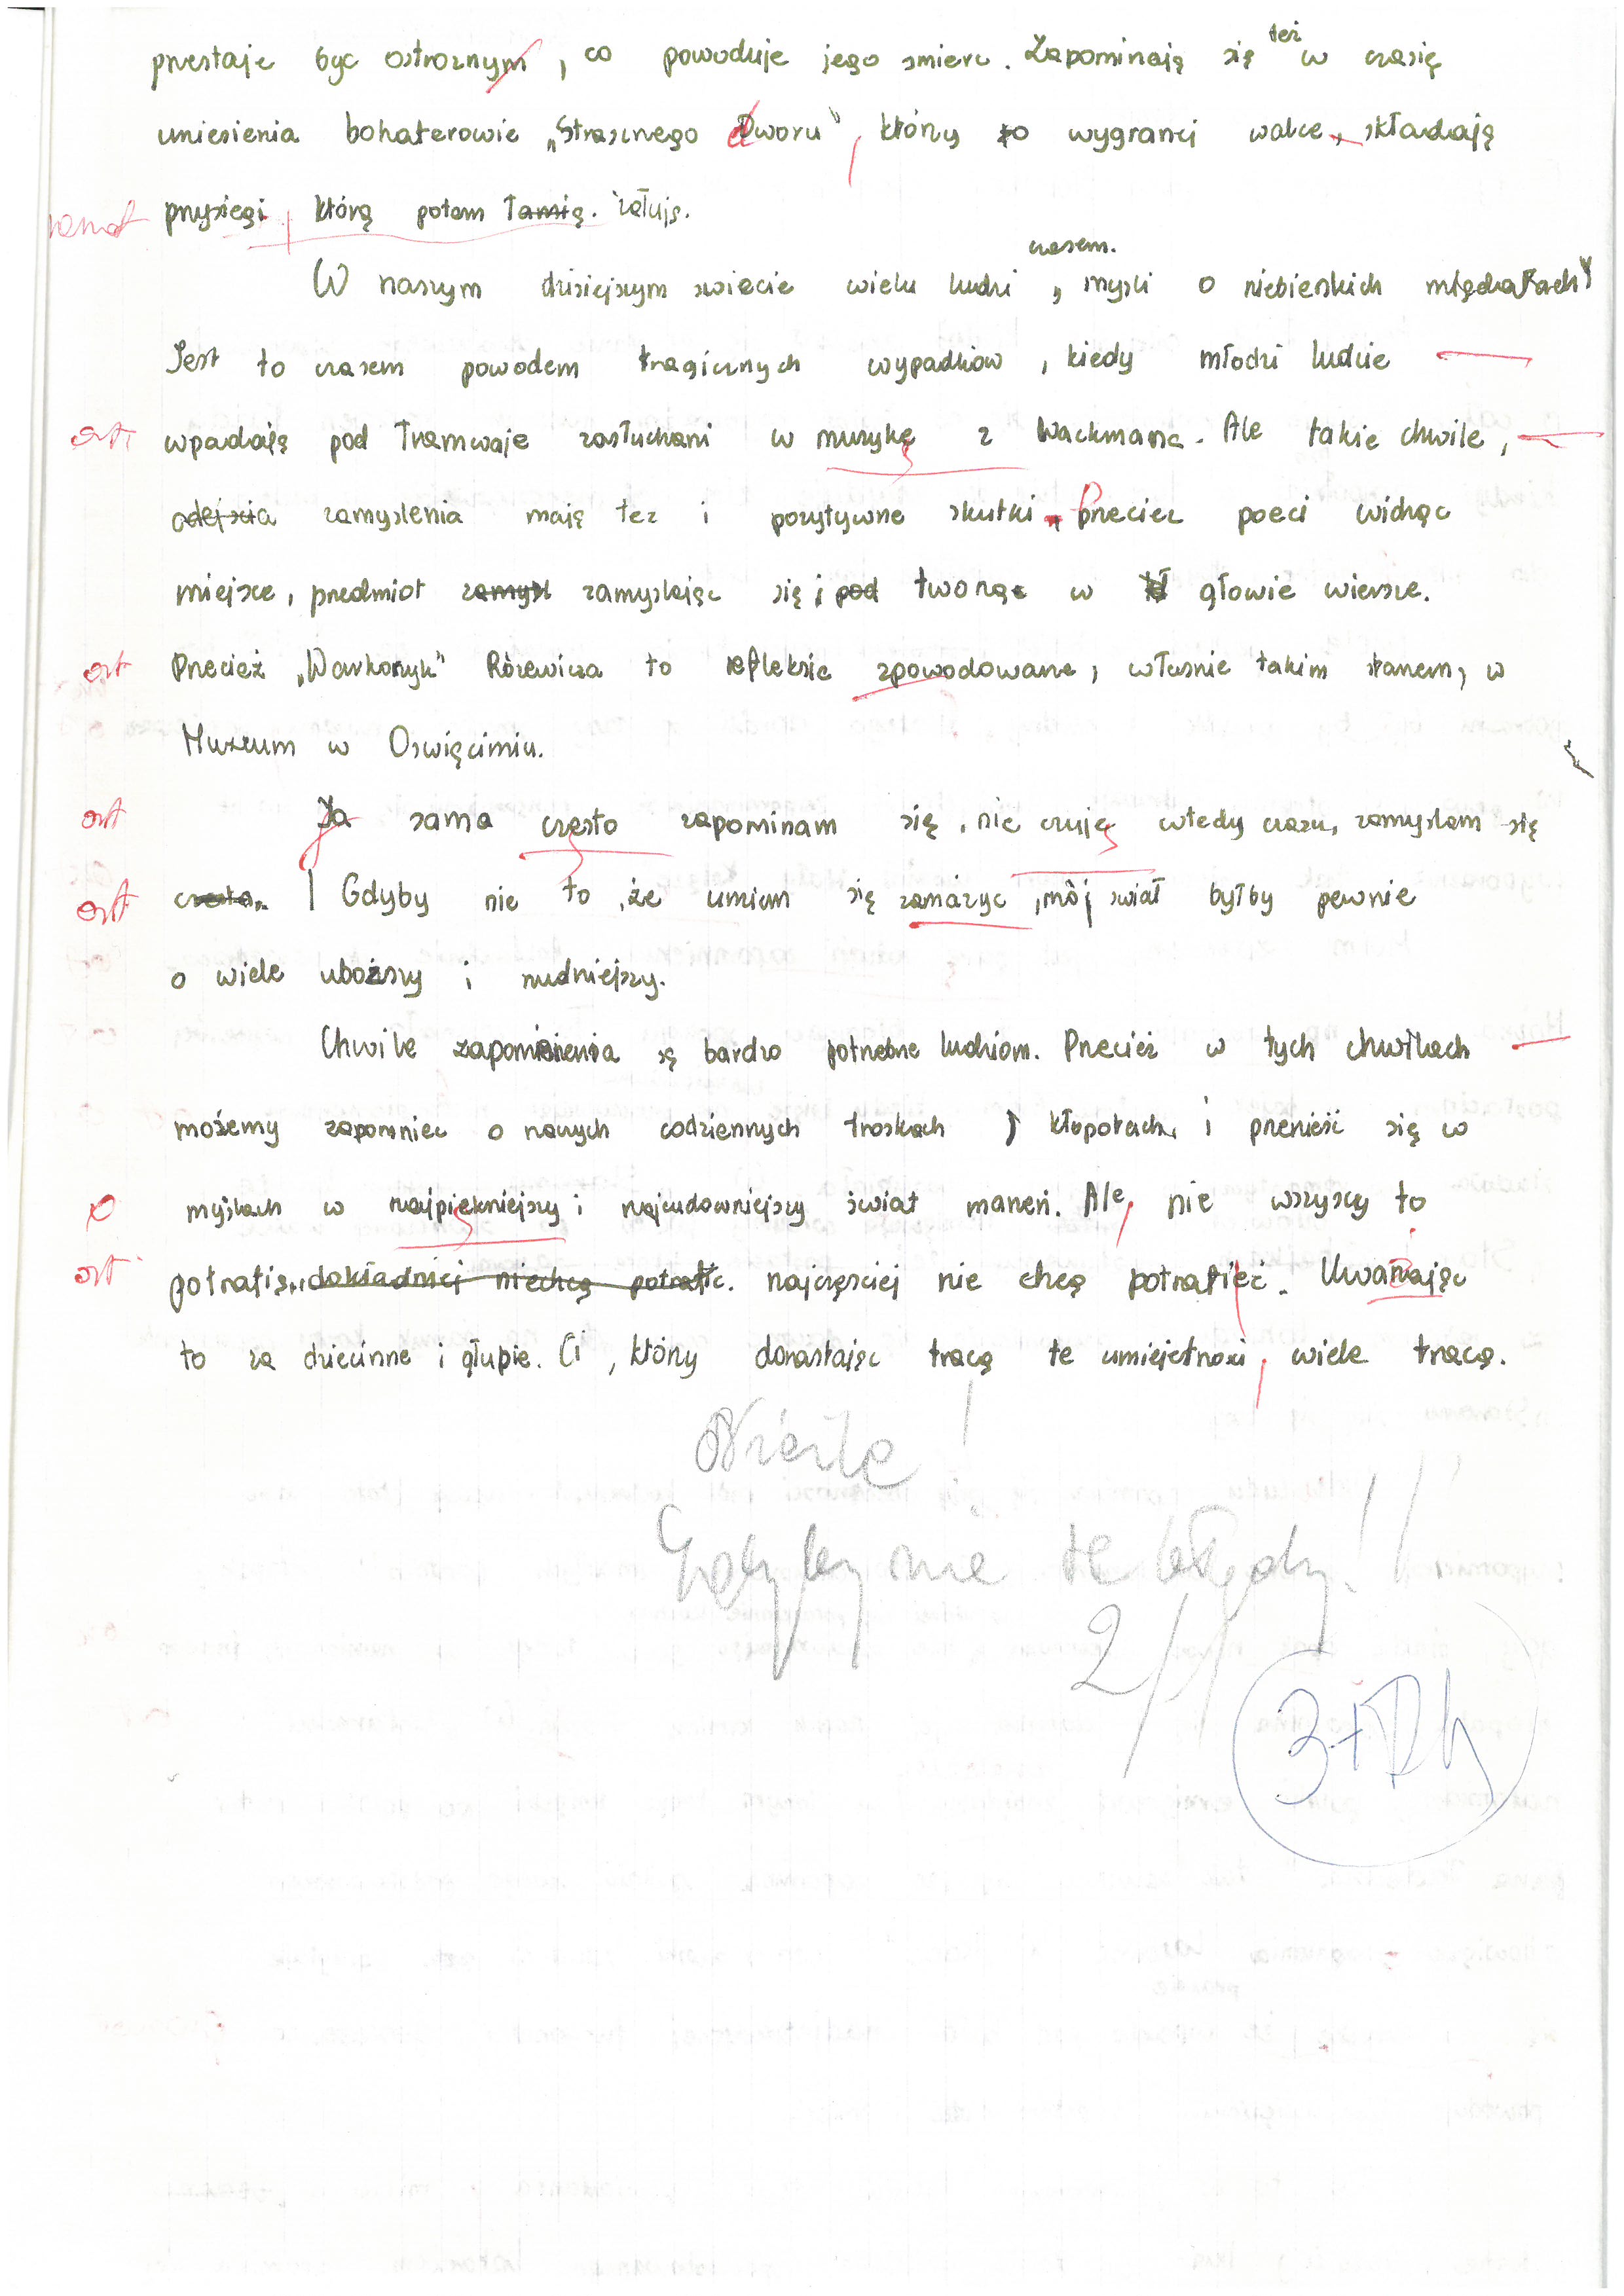 przestaje byc ostroznym, co powoduje jego smierc. Zapominają się też w czasię
uniesienia bohaterowie „Strasznego Dworu", którzy po wygranej walce, składają
przysięgi którą potem łamią. żałują.
W naszym dzisiejszym swiecie wielu ludzi czasem, mysli o niebieskich migdałach
Jest to czasem powodem tragicznych wypadków, kiedy młodzi ludzie
ort wpadają pod tramwaje zasłuchani w muzykę z Wackmana. Ale takie chwile,
odejscia zamyslenia mają tez i pozytywne skutki, Przeciez poeci widząc
miejsce, przedmiot zamysl zamyslając się i pod tworzą w głowie wiersze.
ort Przecież „Warkoczyk" Rózewicza to refleksie zpowodowane, własnie takim stanem, w
Muzeum w Oswięcimiu.
ort Ja sama często zapominam się, nie czuję wtedy czasu, zamyslam się
ort czesto. Gdyby nie to, że umiem się zamażyc, mój swiat byłby pewnie
o wiele uboższy i nudniejszy.
Chwile zapomnienia są bardzo potrzebne ludziom. Przecież w tych chwilkach
możemy zapomniec o naszych codziennych troskach, kłopotach, i przenieść się w
myslach w najpiękniejszy i najcudowniejszy świat marzeń. Ale, nie wszyscy to
ort potrafią, dokładniej niechcą potrafic. najczęsciej nie chcą potrafięć. Uwarzając
to za dziecinne i głupie. Ci, którzy dorastając tracą te umiejetnosci, wiele tracą.
Nieźle!
Gdyby nie te błędy!!!
2/
3+